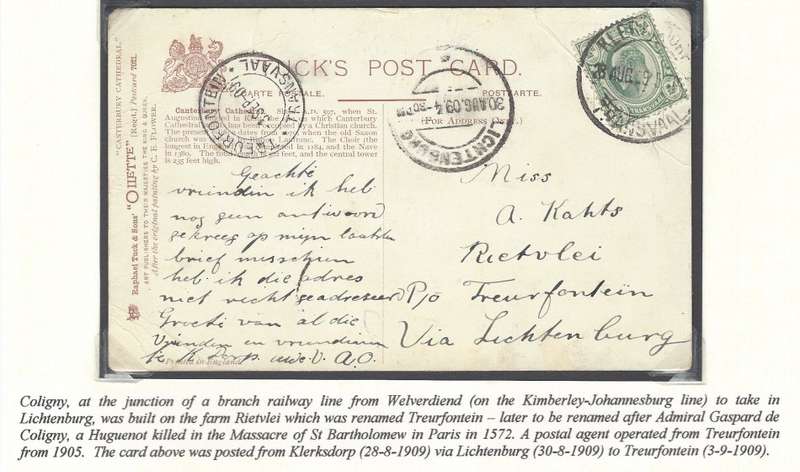 TUCK'S POST CARD.
CARTE POSTALE.
POSTKARTE.
(FOR ADDRESS ONLY.)
"CANTERBURY CATHEDRAL."
Raphael Tuck & Sons' "OILETTE" (Regd.) Postcard 7051.
ART PUBLISHERS TO THEIR MAJESTIES THE KING & QUEEN.
After the original painting by C. E. FLOWER.
Canterbury Cathedral. A.D. 597, when St.
on which Canterbury
by a Christian church.
The present dates from when the old Saxon
church was The Choir (the
longest in in 1184, and the Nave
in 1380. The feet, and the central tower
is 235 feet high.
TREURFONTEIN
TRANSVAAL
LICHTENBURG
30 AUG. 09. 4 30 PM
28 AUG 09
TRANSVAAL
Geachte
vriendin ik heb
nog geen antwoord
gekreeg op mijn laatste
brief misschien
heb ik die adres
niet recht geadresseer
Groete van al die
Vrienden en vriendinnen
dorp. A.O.
Miss
A. Kahts
Rietvlei
P/o Treurfontein
Via Lichtenburg
Printed in England.
Coligny, at the junction of a branch railway line from Welverdiend (on the Kimberley-Johannesburg line) to take in
Lichtenburg, was built on the farm Rietvlei which was renamed Treurfontein – later to be renamed after Admiral Gaspard de
Coligny, a Huguenot killed in the Massacre of St Bartholomew in Paris in 1572. A postal agent operated from Treurfontein
from 1905. The card above was posted from Klerksdorp (28-8-1909) via Lichtenburg (30-8-1909) to Treurfontein (3-9-1909).